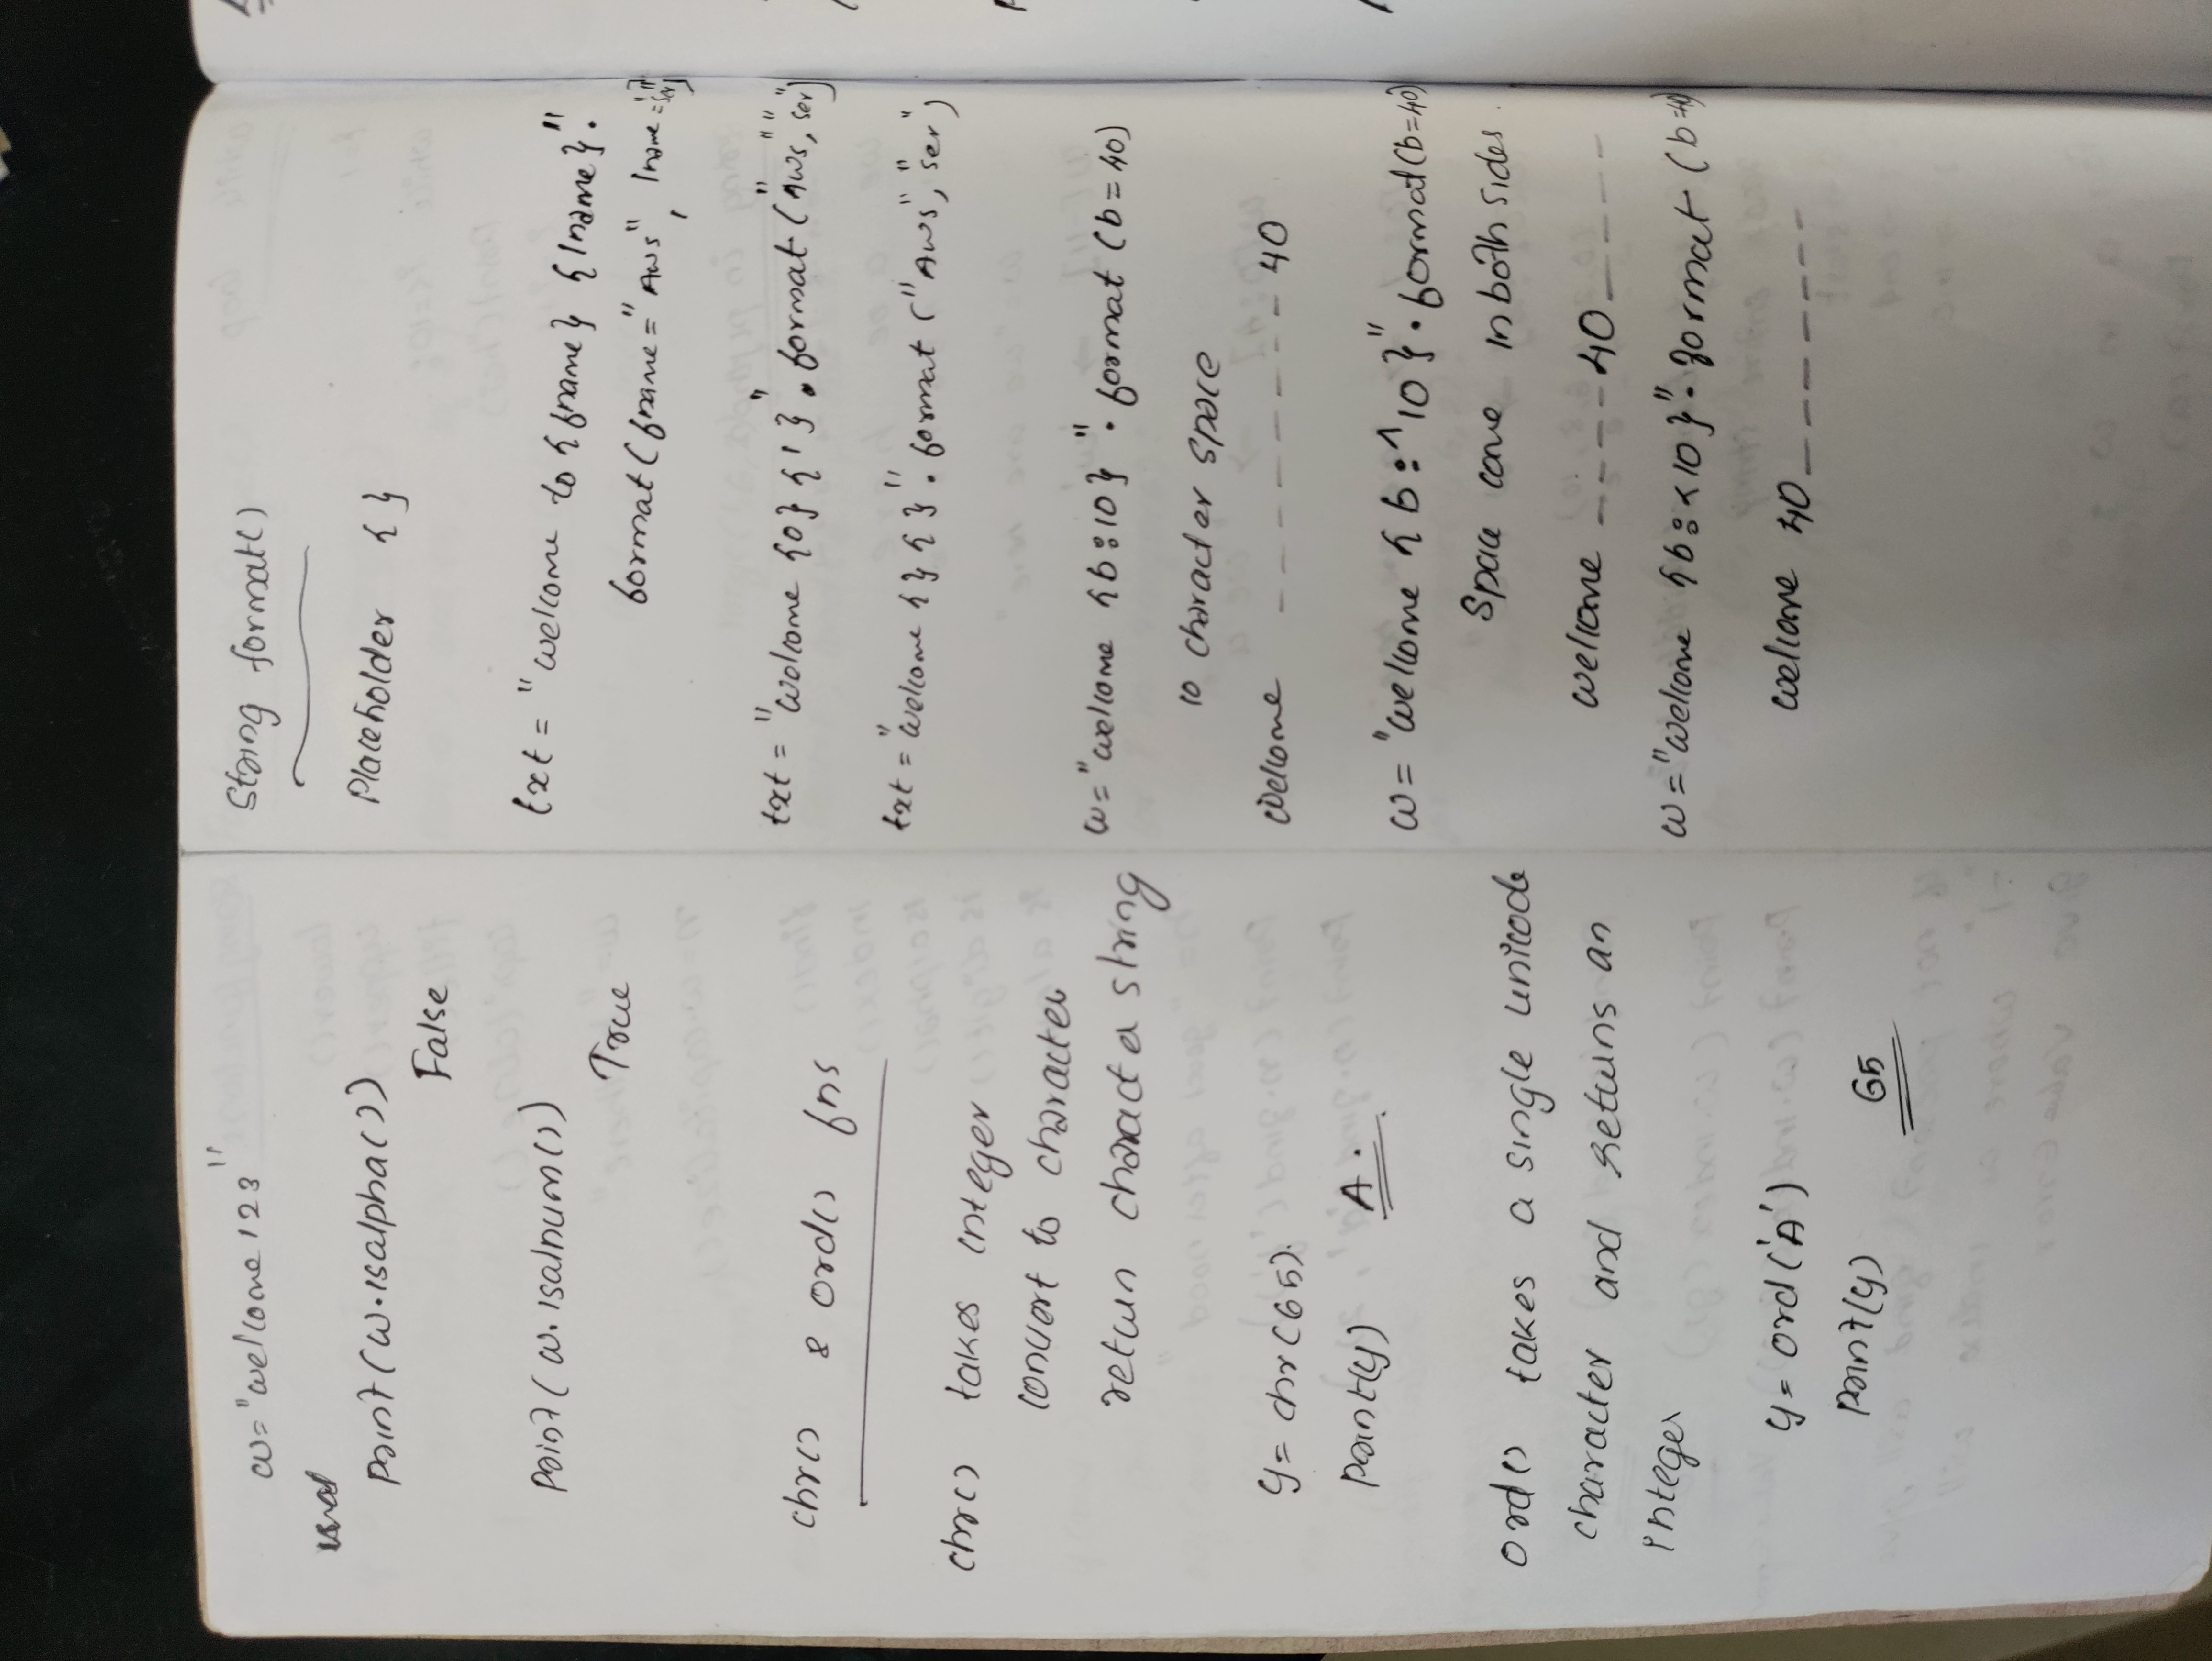 w="welcome123"
print(w.isalpha())
False
print(w.isalnum())
True
chr() & ord() fns
chr() takes integer
convert to character
return character string
y= chr(65).
print(y) A.
ord() takes a single unicode
character and returns an
integer
y= ord('A')
print(y) 65
String format()
Placeholder {}
txt = "welcome to {fname} {lname}".
format(fname="Aws", lname="ser")
txt = "Welcome {0} {1}".format("Aws","ser")
txt = "Welcome {} {}".format("Aws","ser")
w="welcome {b:10}".format(b=40)
10 character space
Welcome _ _ _ _ _ _ _ _ 40
w= "welcome {b:^10}".format(b=40)
Space come in both sides
welcome _ _ _ _ 40 _ _ _ _
w="welcome {b:<10}".format(b=40)
welcome 40 _ _ _ _ _ _ _ _